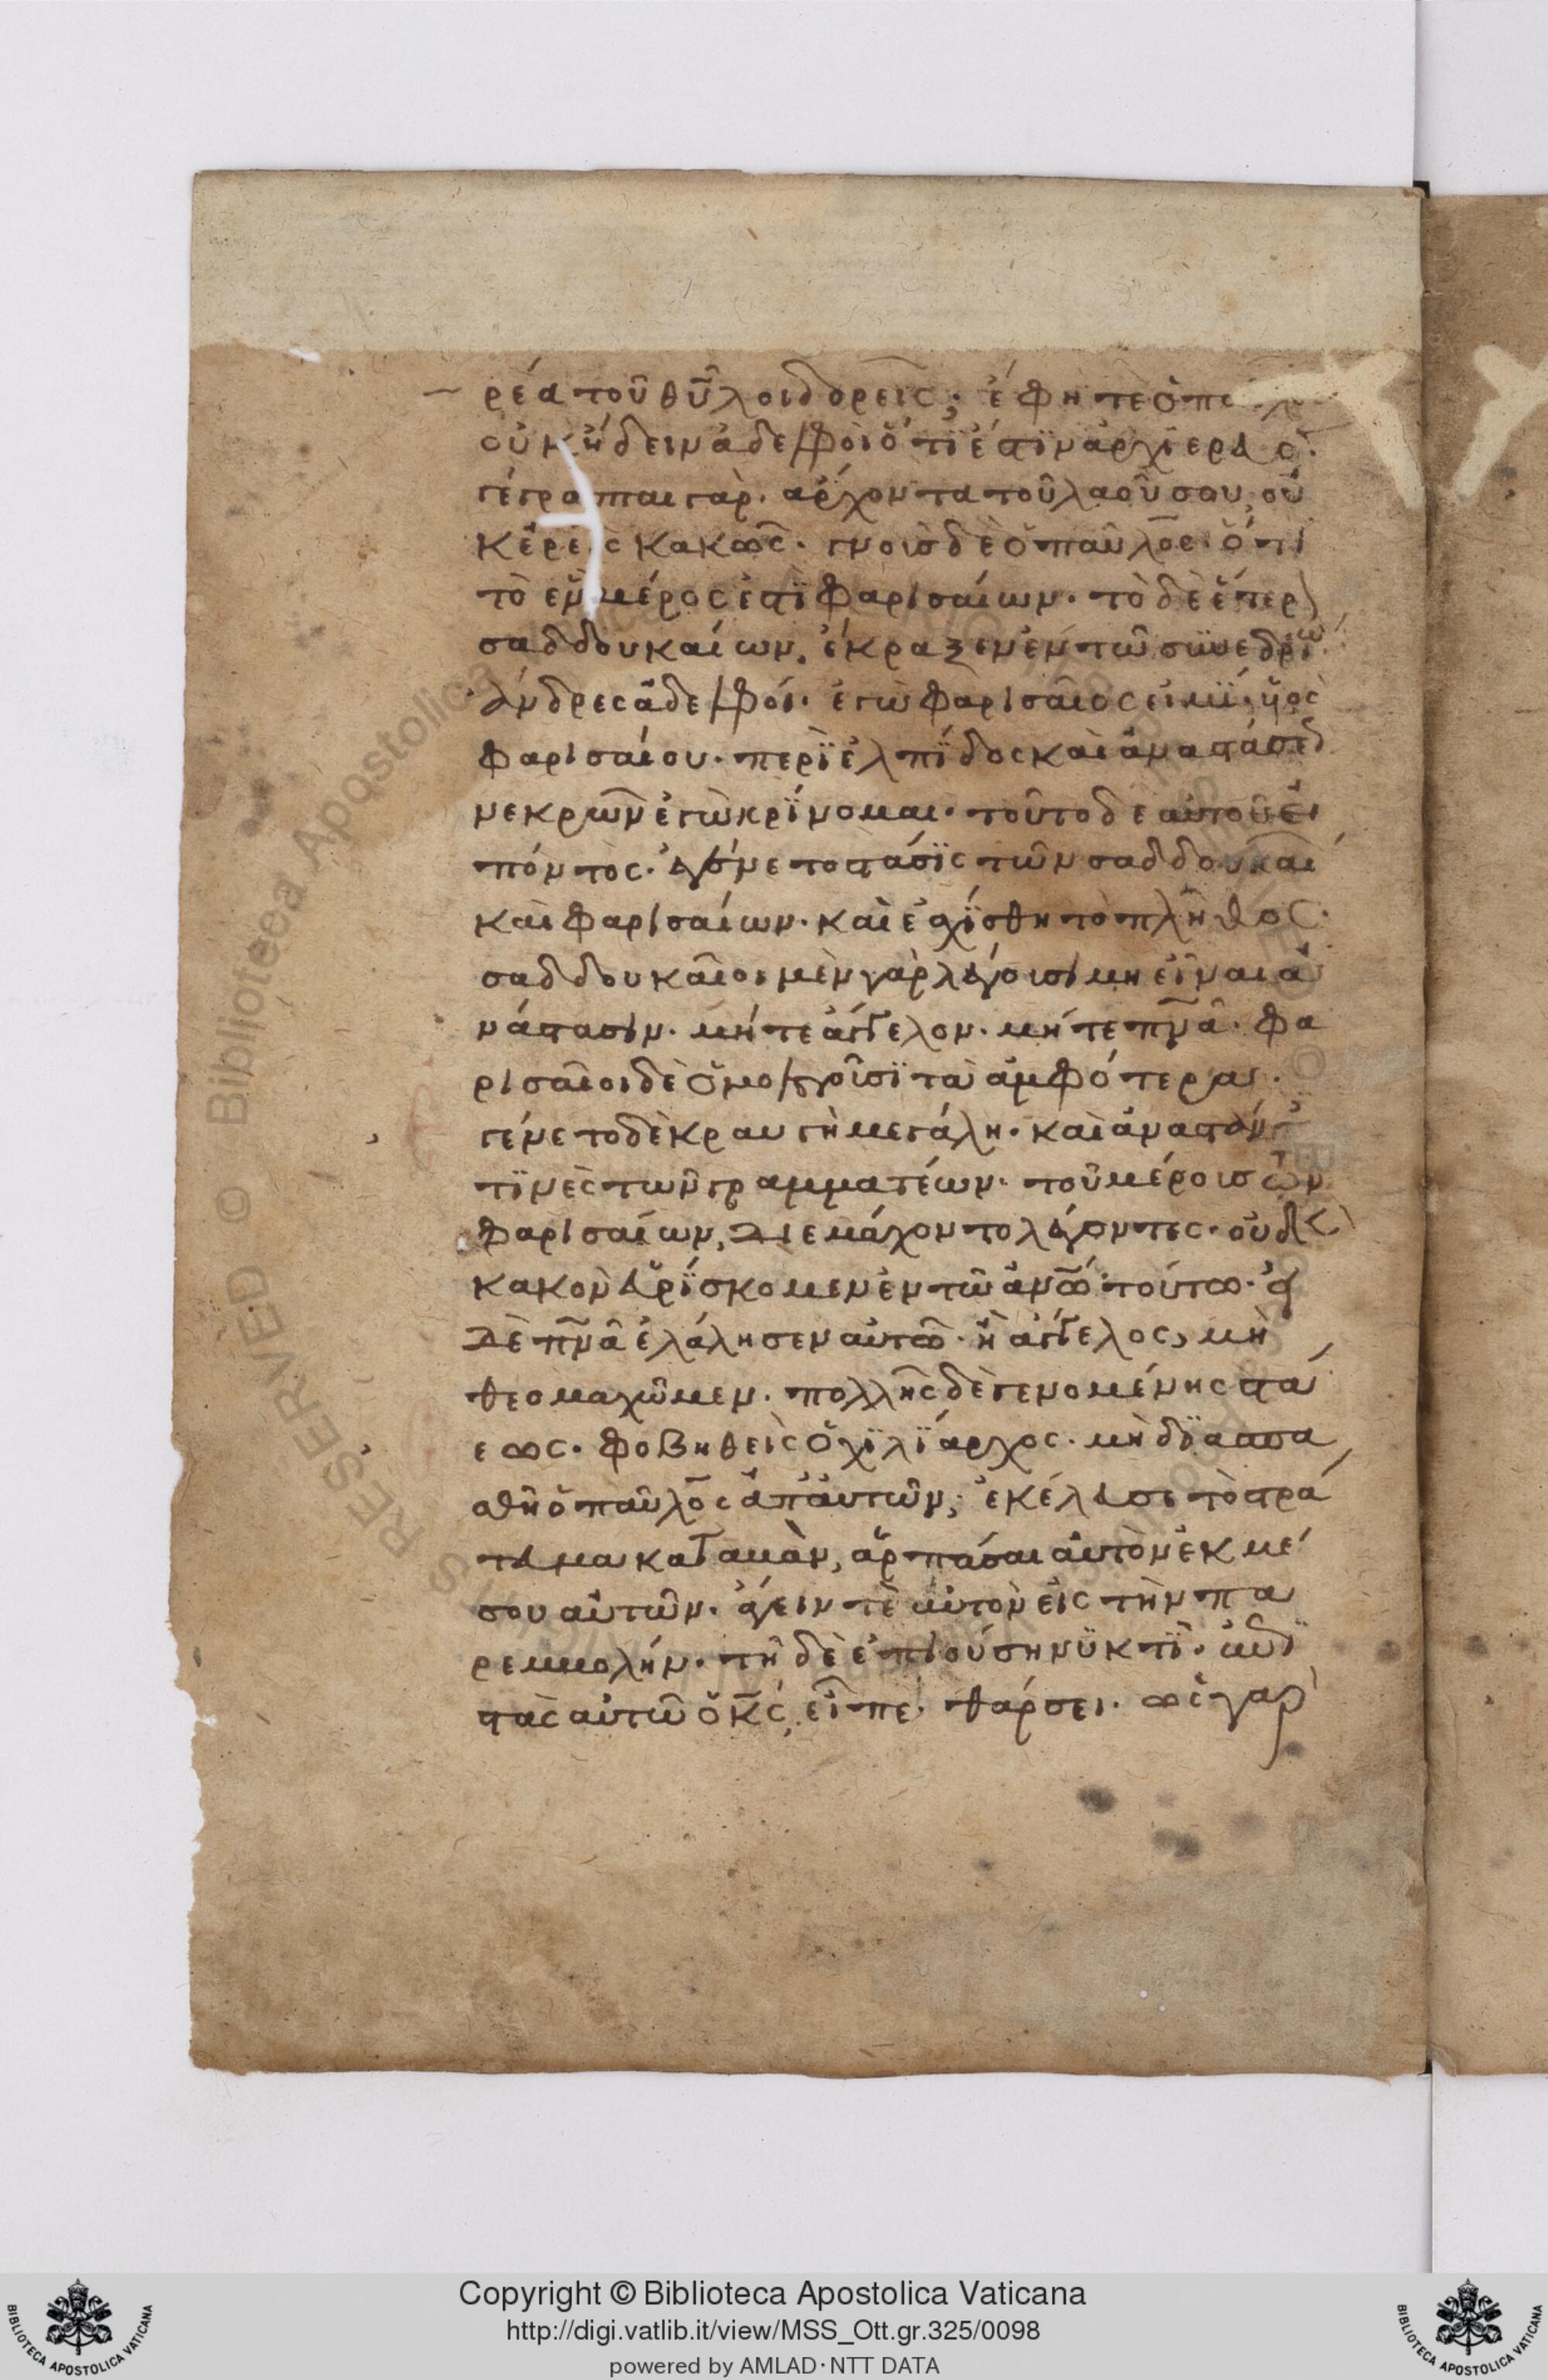 ρέα τοῦ θῦ λοιδορεῖς; ἔφη τὲ ὁ
οὐκ ἤδειν ἀδελφοὶ ὅτι ἐστὶν ἀρχιερεύς.
γέγραπται γὰρ. ἄρχοντα τοῦ λαοῦ σου, οὐ
κ ἐρεῖς κακῶς. γνοὺς δὲ ὁ παῦλος. ὅτι
τὸ ἓν μέρος ἐστὶ φαρισαίων. τὸ δὲ ἕτερ
σαδδουκαίων. ἔκραξεν ἐν τῶ συνεδρίω.
ἄνδρες ἀδελφοί. ἐγὼ φαρισαῖος εἰμί. υἱὸς
φαρισαίου. περὶ ἐλπίδος καὶ ἀναστάσε
νεκρῶν ἐγὼ κρίνομαι. τοῦτο δὲ αὐτοῦ εἰ
πόντος. ἐγένετο στάσις τῶν σαδδουκαί
καὶ φαρισαίων. καὶ ἐσχίσθη τὸ πλῆθος.
σαδδουκαῖοι μὲν γὰρ λέγουσι μὴ εἶναι ἀ
νάστασιν. μήτε ἄγγελον. μήτε πνᾶ. φα
ρισαῖοι δὲ ὁμολογοῦσι τὰ ἀμφότερα. ἐ
γένετο δὲ κραυγὴ μεγάλη. καὶ ἀναστάντ
τινὲς τῶν γραμματέων. τοῦ μέρους τῶν
φαρισαίων, διεμάχοντο λέγοντες. οὐδὲν
κακὸν εὑρίσκομεν ἐν τῶ ἀνῶ τούτω. εἰ
δὲ πνᾶ ἐλάλησεν αὐτῶ. ἢ ἄγγελος, μὴ
θεομαχῶμεν. πολλῆς δὲ γενομένης στά
εως. φοβηθεὶς ὁ χιλίαρχος. μὴ διασπα
σθῆ ὁ παῦλος ἀπ' αὐτῶν, ἐκέλευσε τὸ στρά
τευμα καταβὰν, ἁρπάσαι αὐτὸν ἐκ μέ
σου αὐτῶν. ἄγειν τὲ αὐτὸν εἰς τὴν πα
ρεμβολήν. τῆ δὲ ἐπιούση νυκτὶ. ἐπι
στὰς αὐτῶ ὁ κς, εἶπε. θάρσει. ὡς γαρ
Copyright © Biblioteca Apostolica Vaticana
http://digi.vatlib.it/view/MSS_Ott.gr.325/0098
powered by AMLAD·NTT DATA